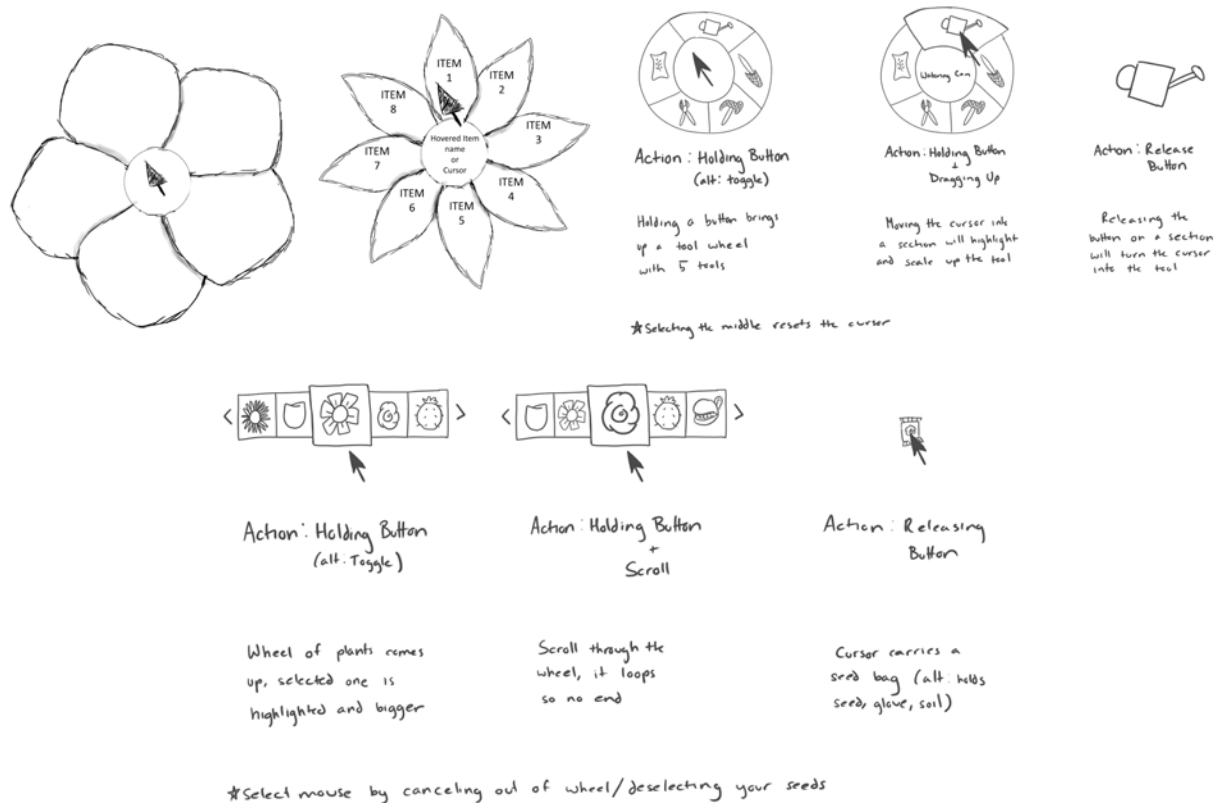 ITEM
1
ITEM
2
ITEM
3
ITEM
4
ITEM
5
ITEM
6
ITEM
7
ITEM
8
Hovered Item
name
or
Cursor
Action: Holding Button
(alt: toggle)
Holding a button brings
up a tool wheel
with 5 tools
Watering Can
Action: Holding Button
+
Dragging Up
Moving the cursor into
a section will highlight
and scale up the tool
Action: Release
Button
Releasing the
button on a section
will turn the cursor
into the tool
*Selecting the middle resets the cursor
<
>
Action: Holding Button
(alt: Toggle)
Wheel of plants comes
up, selected one is
highlighted and bigger
<
>
Action: Holding Button
+
Scroll
Scroll through the
wheel, it loops
so no end
Action: Releasing
Button
Cursor carries a
seed bag (alt: holds
seed, glove, soil)
*Select mouse by canceling out of wheel/deselecting your seeds